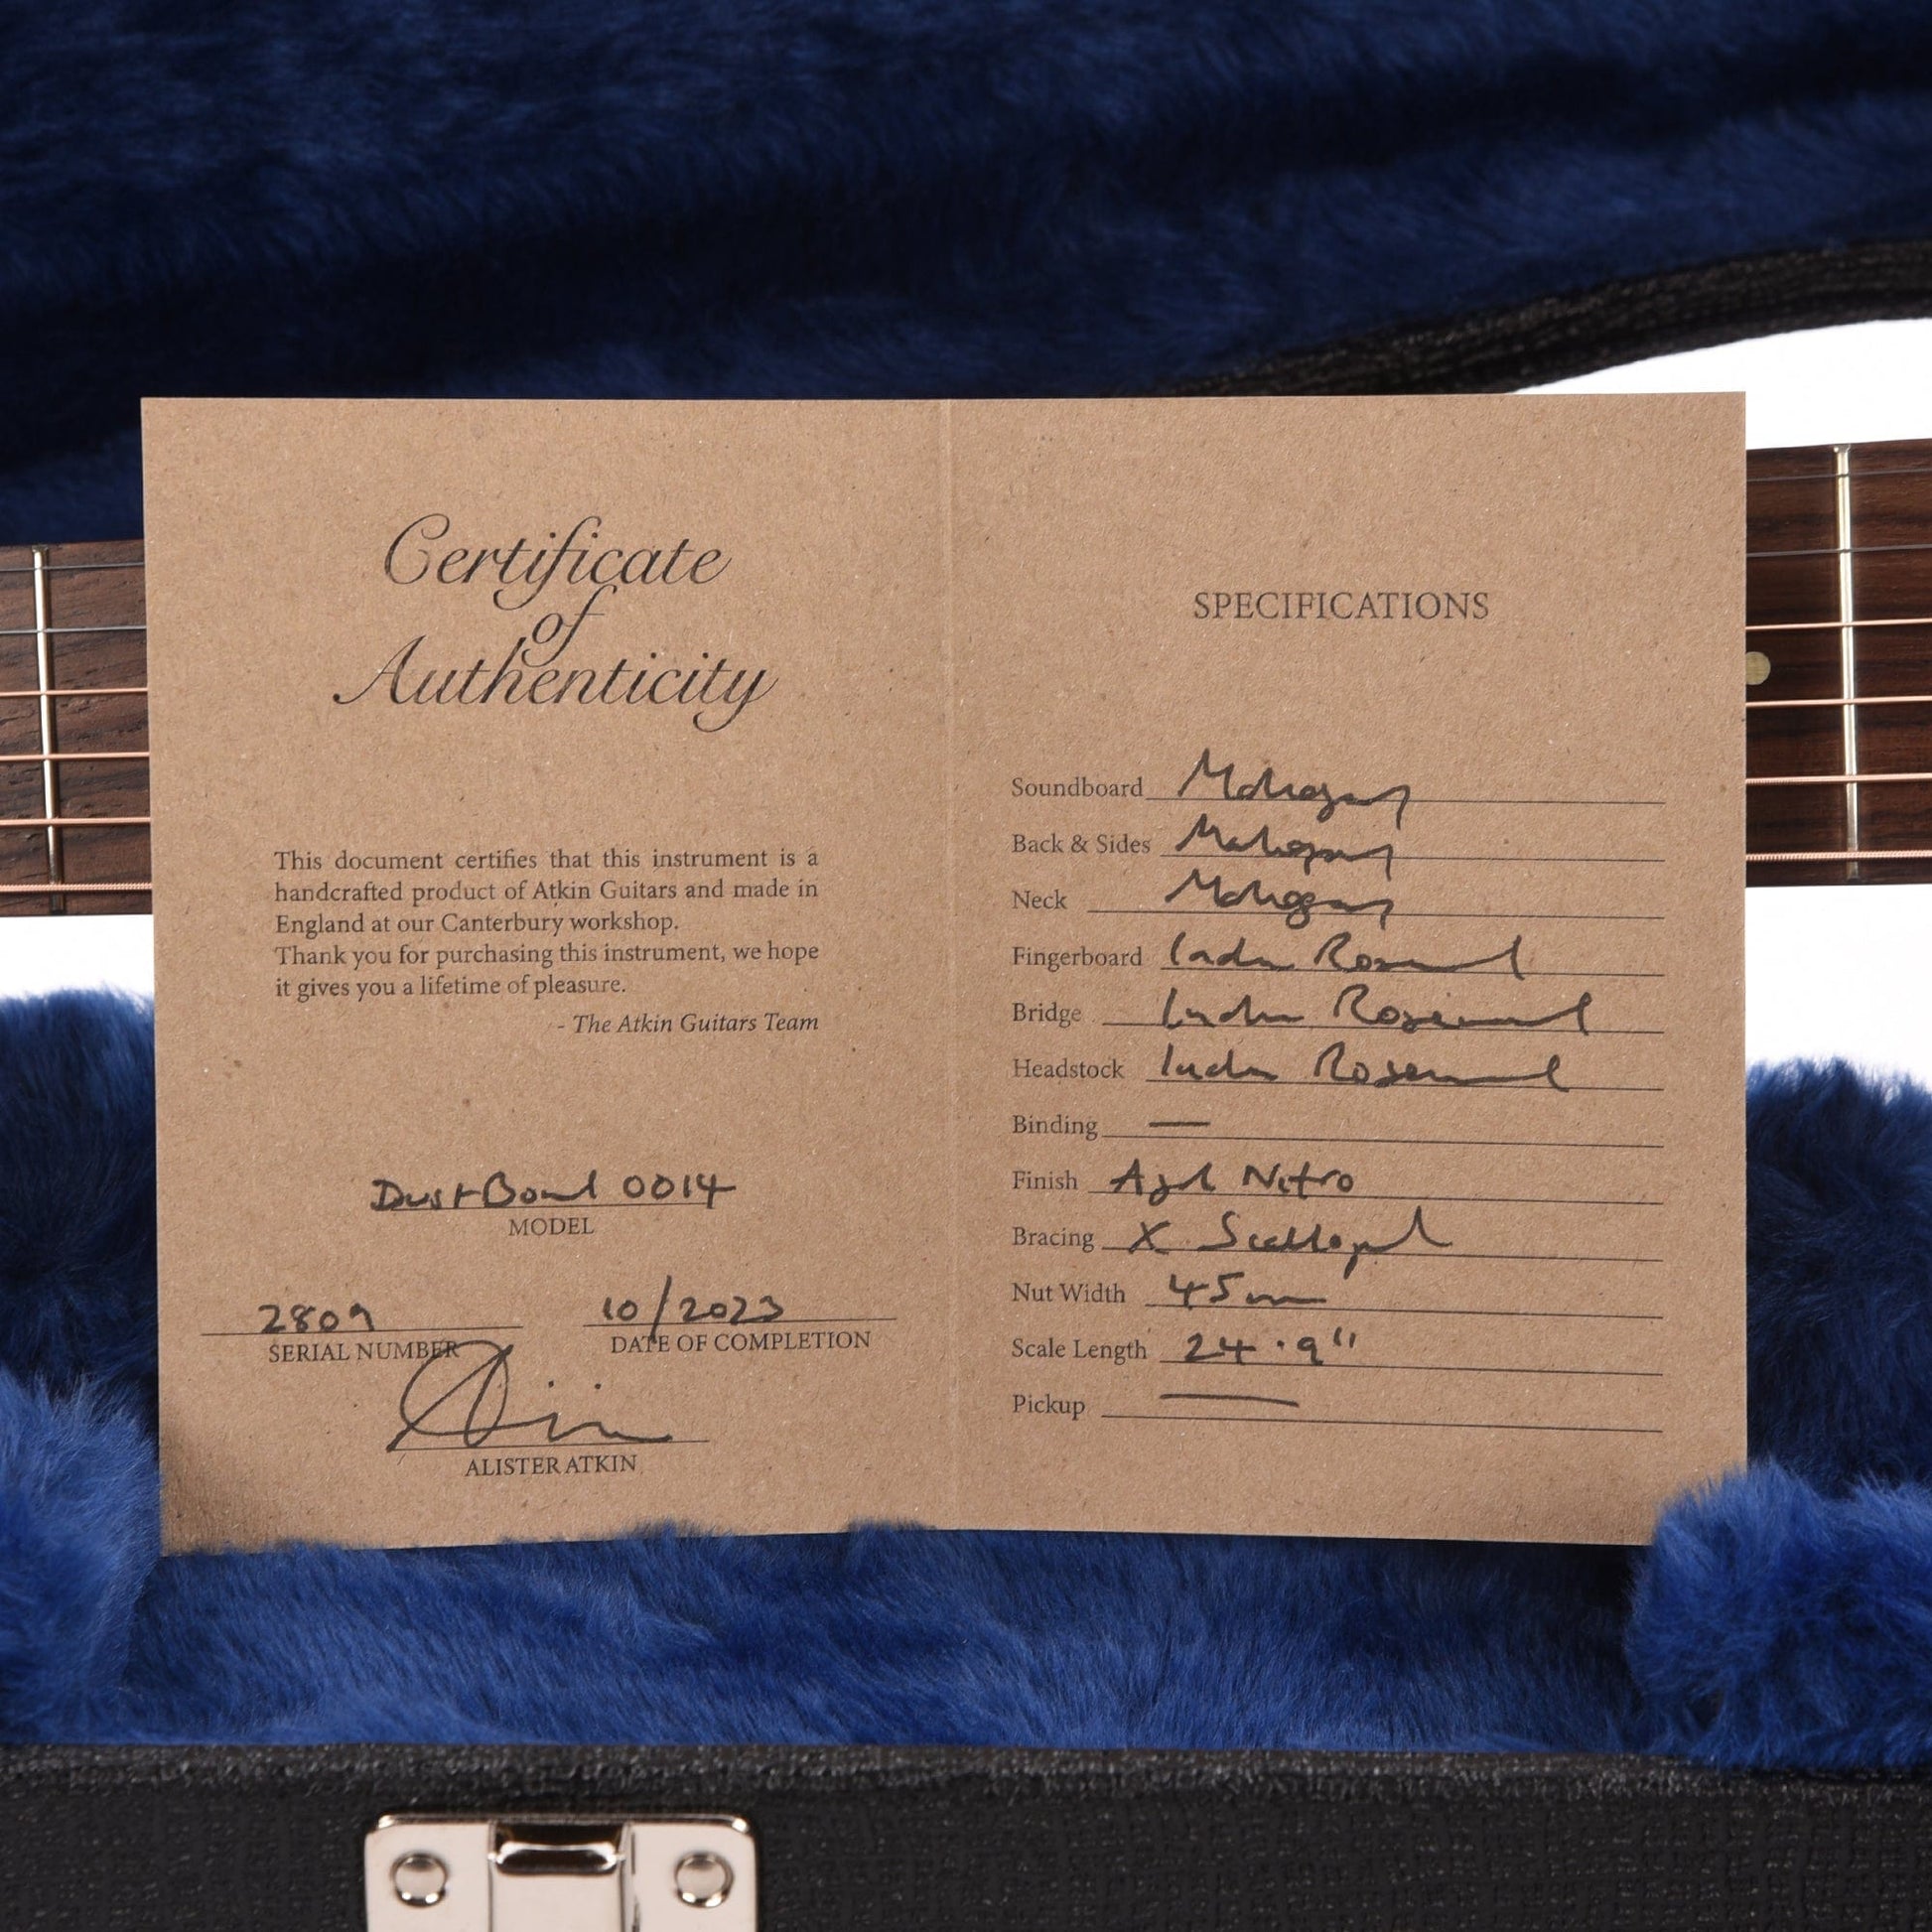 Certificate
of
Authenticity
This document certifies that this instrument is a
handcrafted product of Atkin Guitars and made in
England at our Canterbury workshop.
Thank you for purchasing this instrument, we hope
it gives you a lifetime of pleasure.
- The Atkin Guitars Team
DustBowl 0014
MODEL
2809
SERIAL NUMBER
10/2023
DATE OF COMPLETION
ALISTER ATKIN
SPECIFICATIONS
Soundboard Mahogany
Back & Sides Mahogany
Neck Mahogany
Fingerboard Indian Rosewood
Bridge Indian Rosewood
Headstock Indian Rosewood
Binding —
Finish Aged Nitro
Bracing X Scalloped
Nut Width 45mm
Scale Length 24.9"
Pickup —